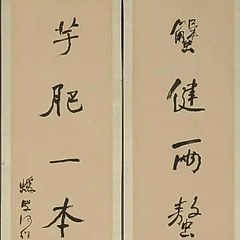 蟹健兩螯
芋肥一本